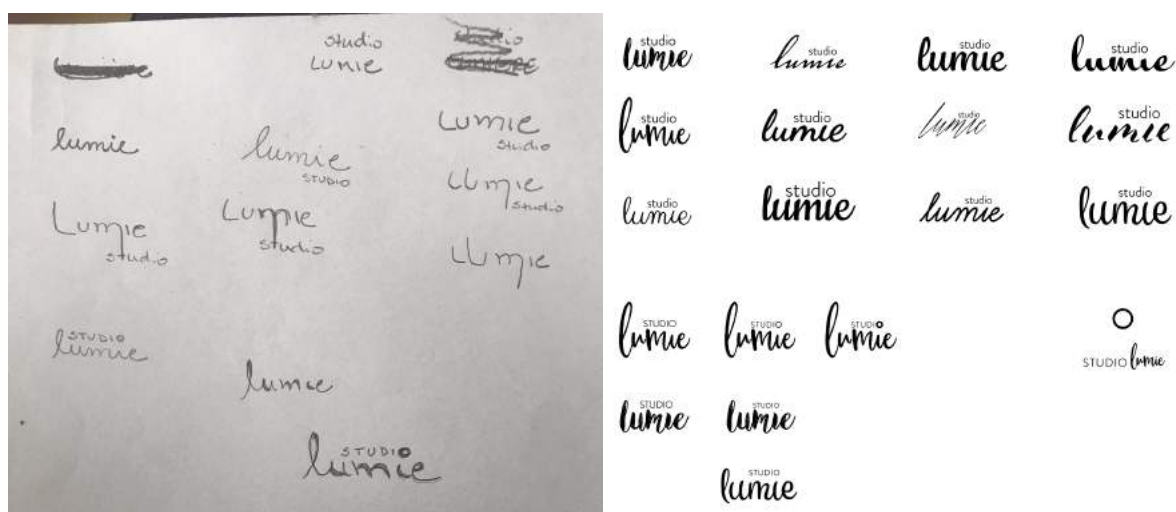 studio
Lumie
Lumie
studio
lumie
lumie
STUDIO
Lumie
studio
Lumie
studio
Lumie
studio
Lumie
STUDIO
lumie
lumie
STUDIO
lumie
studio
lumie
studio
lumie
studio
lumie
studio
lumie
studio
lumie
studio
lumie
studio
lumie
studio
lumie
studio
lumie
studio
lumie
studio
lumie
studio
lumie
STUDIO
lumie
STUDIO
lumie
STUDIO
lumie
STUDIO lumie
STUDIO
lumie
STUDIO
lumie
STUDIO
lumie